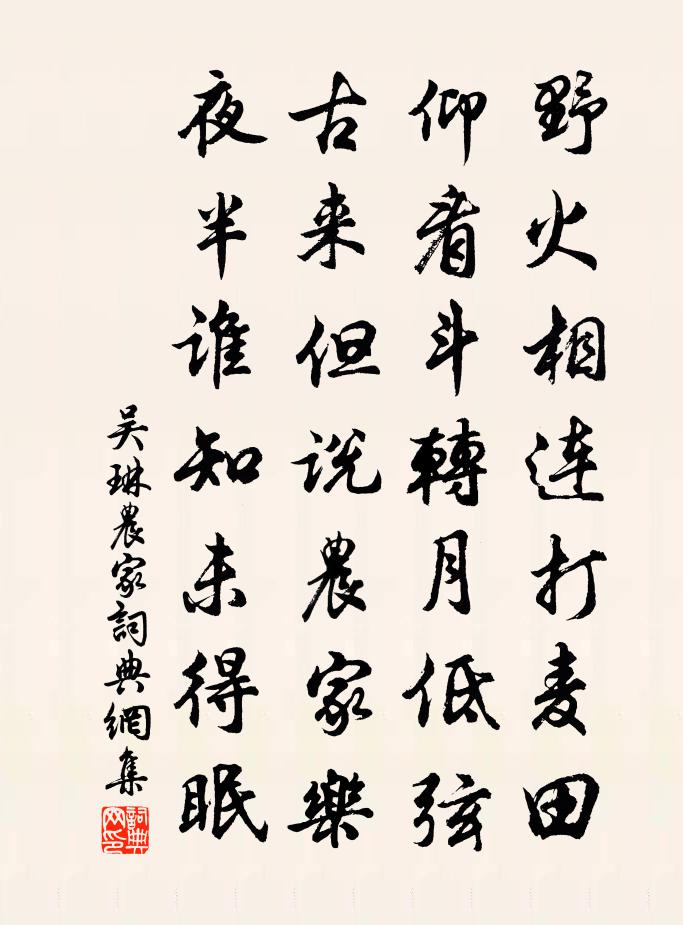 野火相连打麦田
仰看斗轉月低弦
古来但说農家樂
夜半谁知未得眠
吴琳農家詞典網集
詞典网印